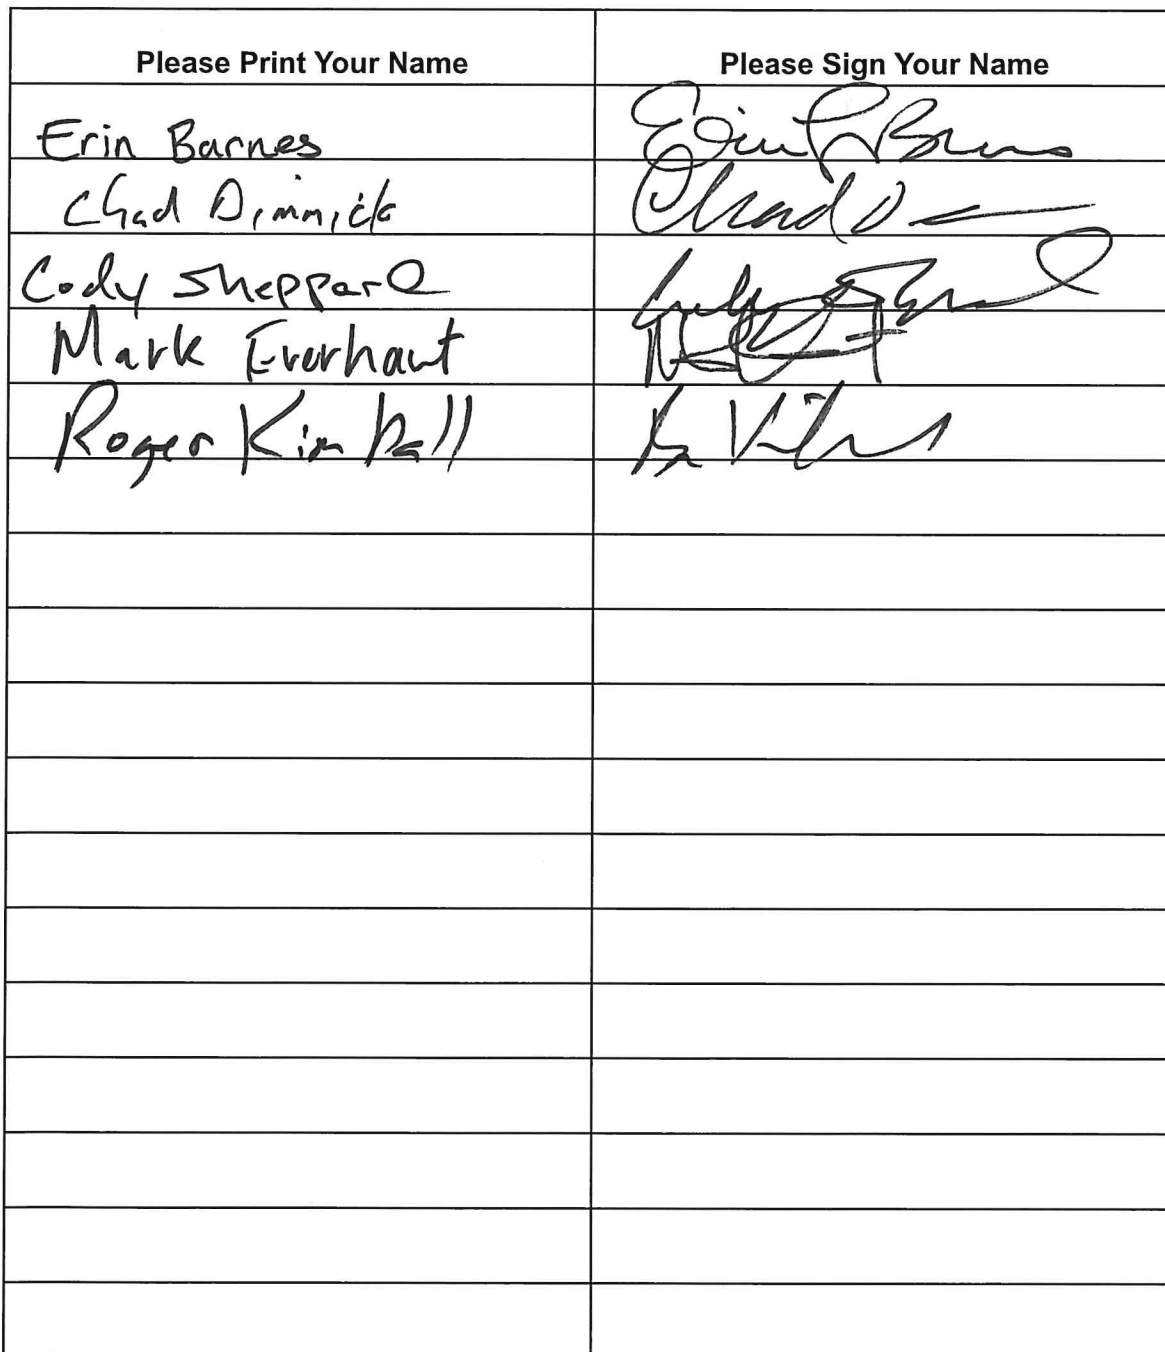 Please Print Your Name Please Sign Your Name
Erin Barnes Erin L Barnes
Chad Dimmick Chad D
Cody Sheppard
Mark Everhart
Roger Kimball